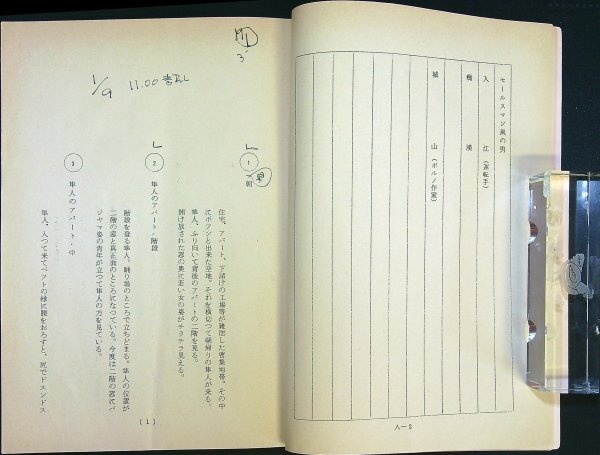 セールスマン風の男
入江(運転手)
痴漢
城山(ポルノ作家)
人-3
1/9 11.00
3'
1
早朝
住宅、アパート、下請けの工場等が雑居した密集地帯。その中
にポツンと出来た空地。それを横切って朝帰りの隼人が来る。
隼人、ふり向いて背後のアパートの二階を見る。
開け放された窓の奥に若い女の姿がチラチラ見える。
2
隼人のアパート・階段
階段を登る隼人。踊り場のところで立ちどまる。隼人の位置が
二階の窓と真正面のところになっている。今度は二階の窓にパ
ジャマ姿の青年が立って隼人の方を見ている。
3
隼人のアパート・中
隼人、入って来てベットの縁に腰をおろすと、尻でドスンドス
(1)